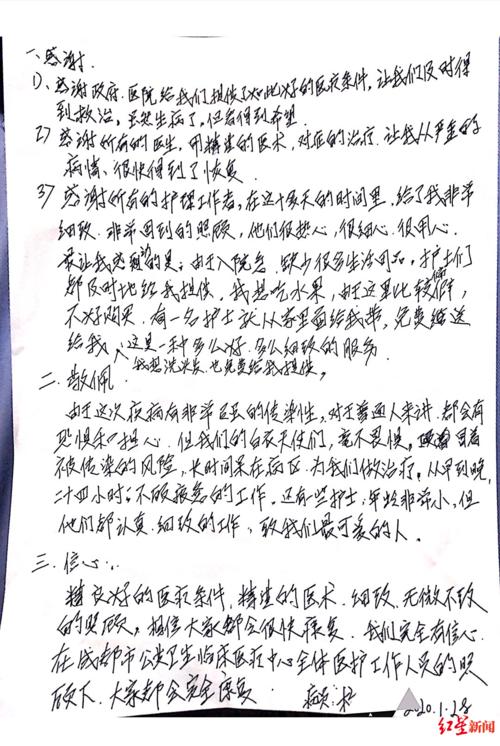 一、感谢.
1)、感谢政府.医院给我们提供了如此好的医疗条件,让我们及时得
到救治,虽然生病了,但看得到希望.
2) 感谢所有的医生,用精湛的医术,对症的治疗.让我从严重的
病情、很快得到了恢复.
3) 感谢所有的护理工作者,在这十多天的时间里,给了我非常
细致.非常周到的照顾,他们很热心,很细心,很用心.
最让我感动的是:由于入院急.缺少很多生活用品,护士们
都及时地给我提供.我想吃水果,由于这里比较偏僻,
不好购买.有一名护士就从家里面给我带,免费赠送
给我,这是一种多么好.多么细致的服务.
我想洗头发.也免费给我提供,
二、敬佩.
由于这次疫病有非常强的传染性,对于普通人来讲.都会有
恐惧和担心.但我们的白衣天使们,毫不畏惧,冒着
被传染的风险,长时间呆在病区.为我们做治疗,从早到晚,
二十四小时:不顾疲惫的工作.还有些护士,年龄非常小,但
他们都认真.细致的工作,致我们最可爱的人.
三.信心:.
精良好的医疗条件.精湛的医术.细致.无微不致
的照顾,相信大家都会很快康复.我们完全有信心.
在成都市公共卫生临床医疗中心全体医护工作人员的照
顾下.大家都会完全康复.
2020.1.28
红星新闻